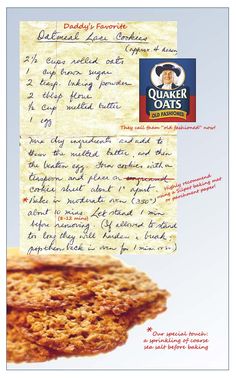 Daddy's Favorite
Oatmeal Lace Cookies
(approx 4 dozen)
2 1/2 cups rolled oats
1 cup brown sugar
2 teasp. baking powder
2 tblsp flour
1/2 cup melted butter
1 egg
QUAKER
OATS
OLD FASHIONED
They call them "old fashioned" now!
Mix dry ingredients and add to
them the melted butter, and then
the beaten egg. Form cookies with a
teaspoon and place on ungreased
cookie sheet about 1" apart.
Highly recommend
a Silpat baking mat
or parchment paper!
* Bake in moderate oven (350°)
about 10 mins. Let stand 1 min
(8-12 mins)
before removing. (If allowed to stand
too long they will harden & break –
pop them back in oven for 1 min or so)
* Our special touch:
a sprinkling of coarse
sea salt before baking